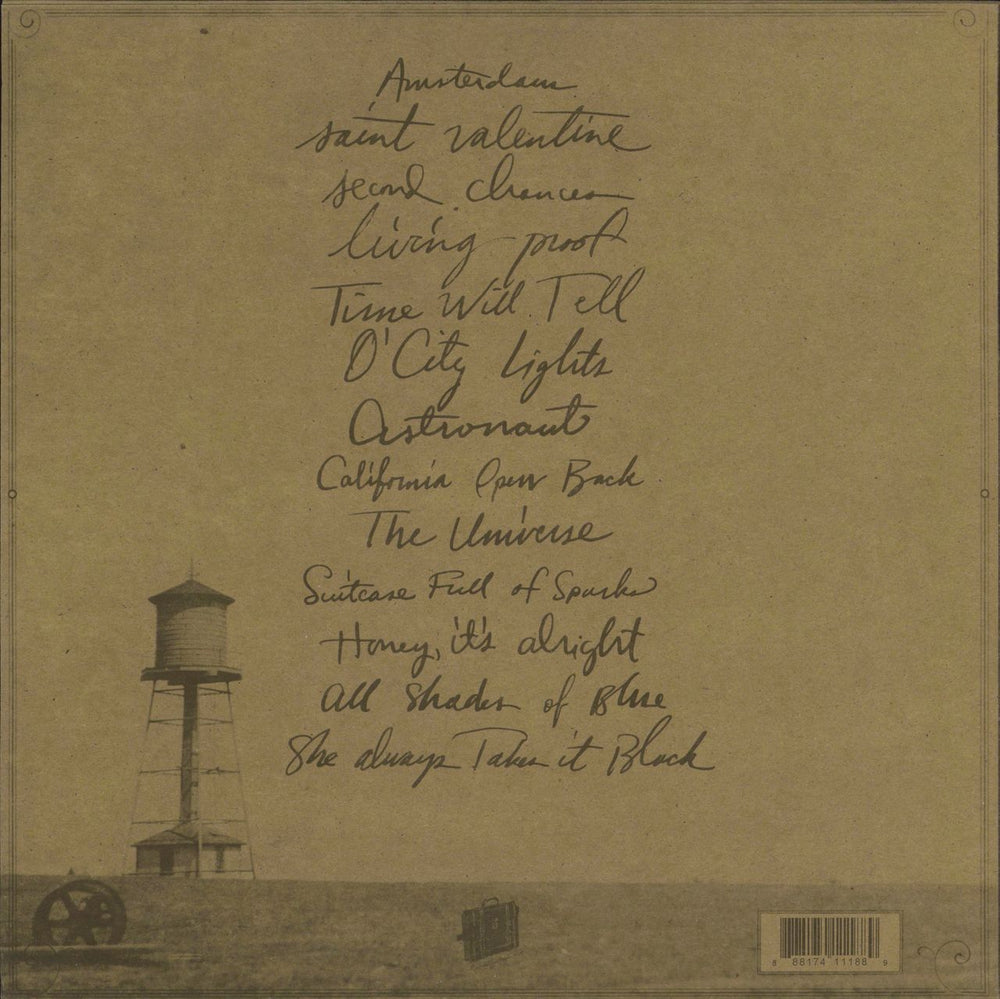 Amsterdam
saint valentine
second chances
living proof
Time Will Tell
O' City Lights
Astronaut
California Open Back
The Universe
Suitcase Full of Sparks
Honey, it's alright
All Shades of Blue
She always Takes it Black
8 88174 11188 9